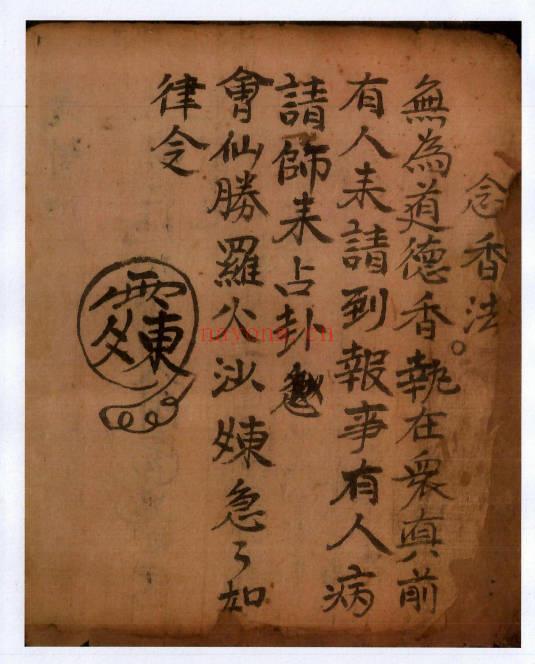 念香法
無為道德香。執在衆真前
有人来請到報事有人病
請師来占卦
會仙勝羅火沙娻急々如
律令
nayona.cn